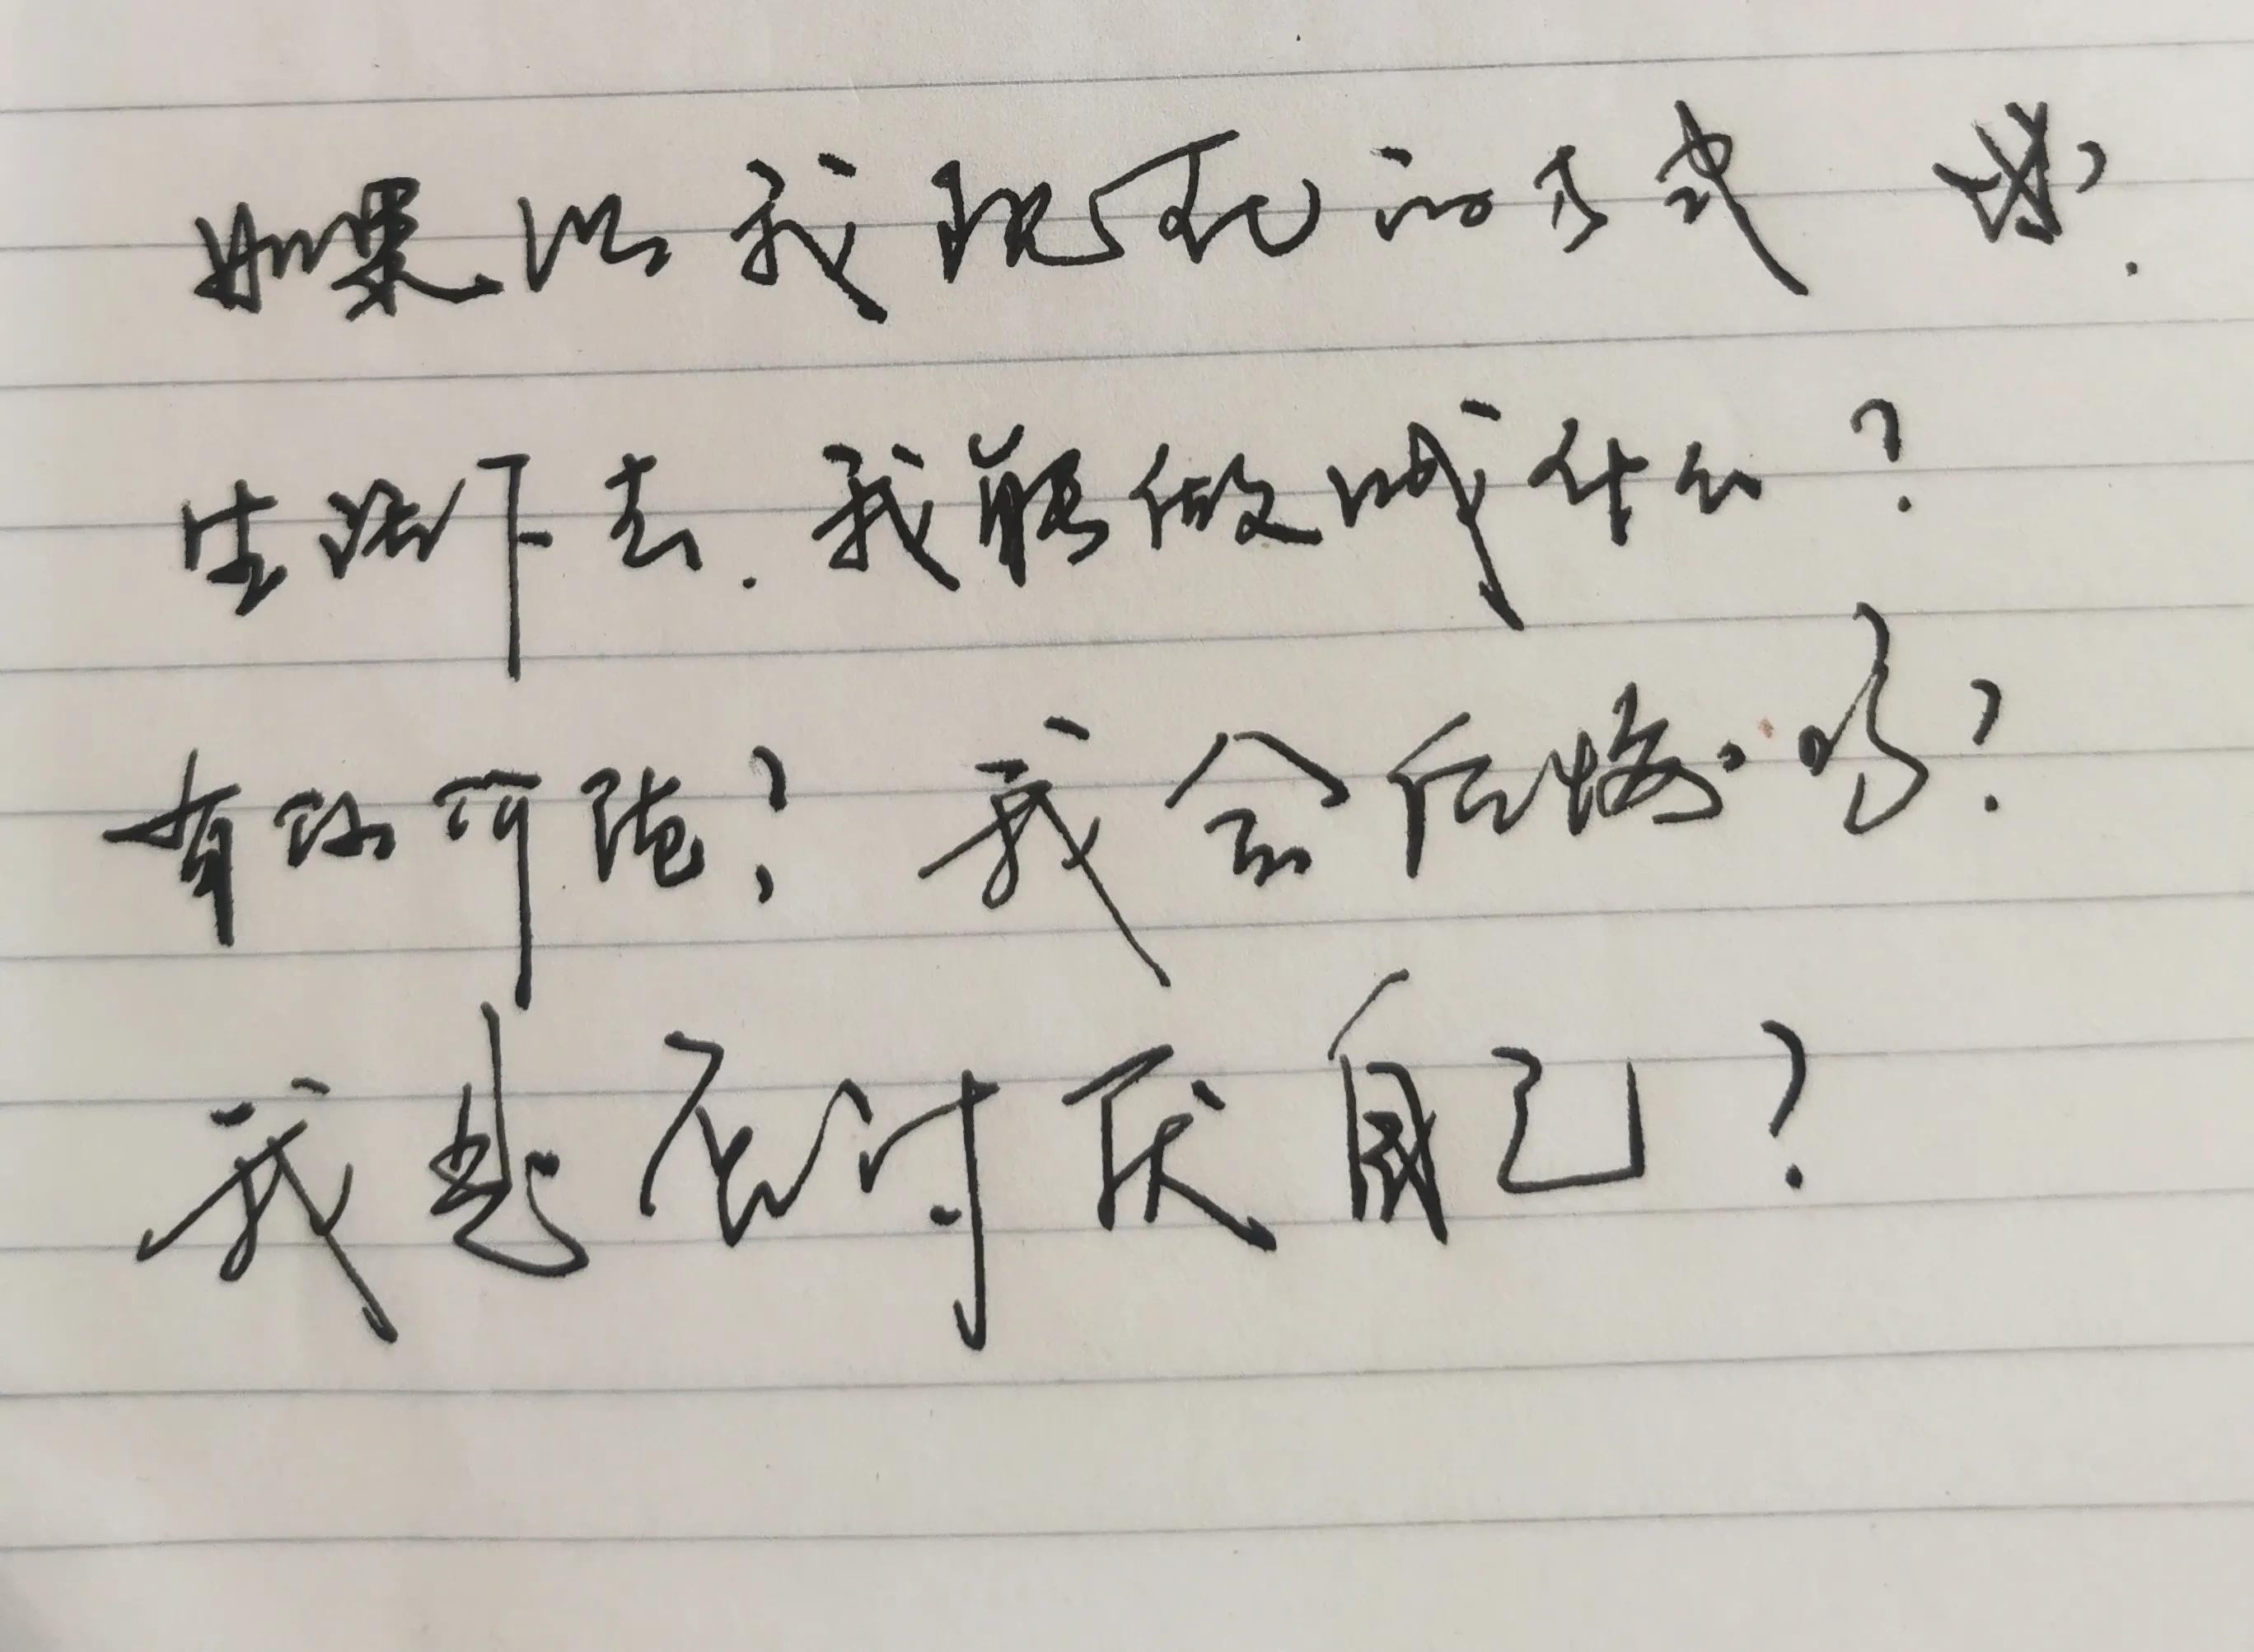 如果以我现在的方式
生活下去.我能做成什么?
有你可能?我会后悔吗?
我是否讨厌自己?